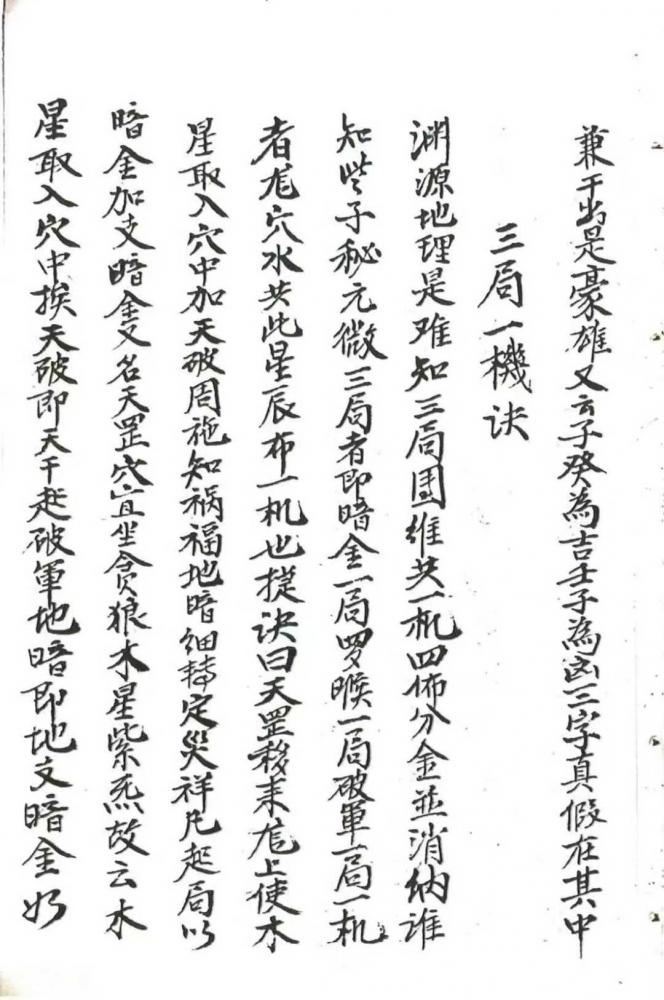 兼干出是豪雄又云子癸為吉壬子為凶三字真假在其中
三局一機诀
渊源地理是难知三局围维共一机四佈分金並消纳谁
知些子秘元微三局者即暗金一局罗睺一局破軍一局一机
者尨穴水共此星辰布一机也提诀曰天罡移来尨上使木
星取入穴中加天破周施知祸福地暗细转定災祥凡起局以
暗金加支暗金又名天罡穴宜坐贪狼木星紫炁故云木
星取入穴中挨天破即天干起破軍地暗即地支暗金如